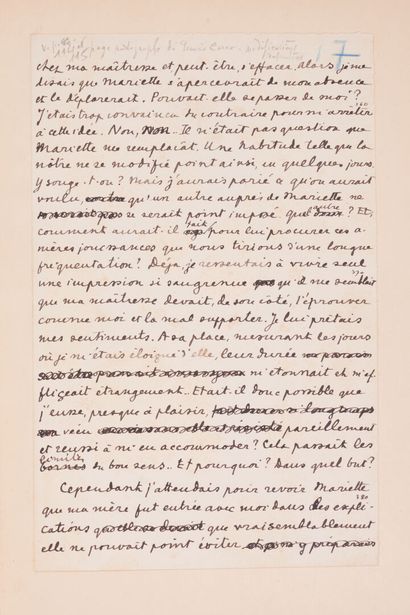 page autographe de Francis Carco
17
chez ma maîtresse et peut-être, s'effacer. Alors je me
disais que Mariette s'apercevrait de mon absence
et la déplorerait. Pouvait-elle se passer de moi ?
J'étais trop convaincu du contraire pour m'arrêter
à cette idée. Non, non. Il n'était pas question que
Mariette me remplaçât. Une habitude telle que la
nôtre ne se modifie point ainsi, en quelques jours.
Y songe-t-on ? Mais j'aurais parié ce qu'on aurait
voulu, qu'un autre auprès de Mariette ne
se serait point imposé. Quel autre ? Et,
comment aurait-il fait pour lui procurer ces a-
mères jouissances que nous tirions d'une longue
fréquentation ? Déjà, je ressentais à vivre seul
une impression si saugrenue qu'il me semblait
que ma maîtresse devait, de son côté, l'éprouver
comme moi et la mal supporter. Je lui prêtais
mes sentiments. A sa place, mesurant les jours
où je m'étais éloigné d'elle, leur durée
m'étonnait et m'af-
fligeait étrangement. Etait-il donc possible que
j'eusse, presque à plaisir,
vécu pareillement
et réussi à m'en accommoder ? Cela passait les
limites
bornes du bon sens. Et pourquoi ? Dans quel but ?
Cependant j'attendais pour revoir Mariette
que ma mère fut entrée avec moi dans des expli-
cations que vraisemblablement
elle ne pouvait point éviter